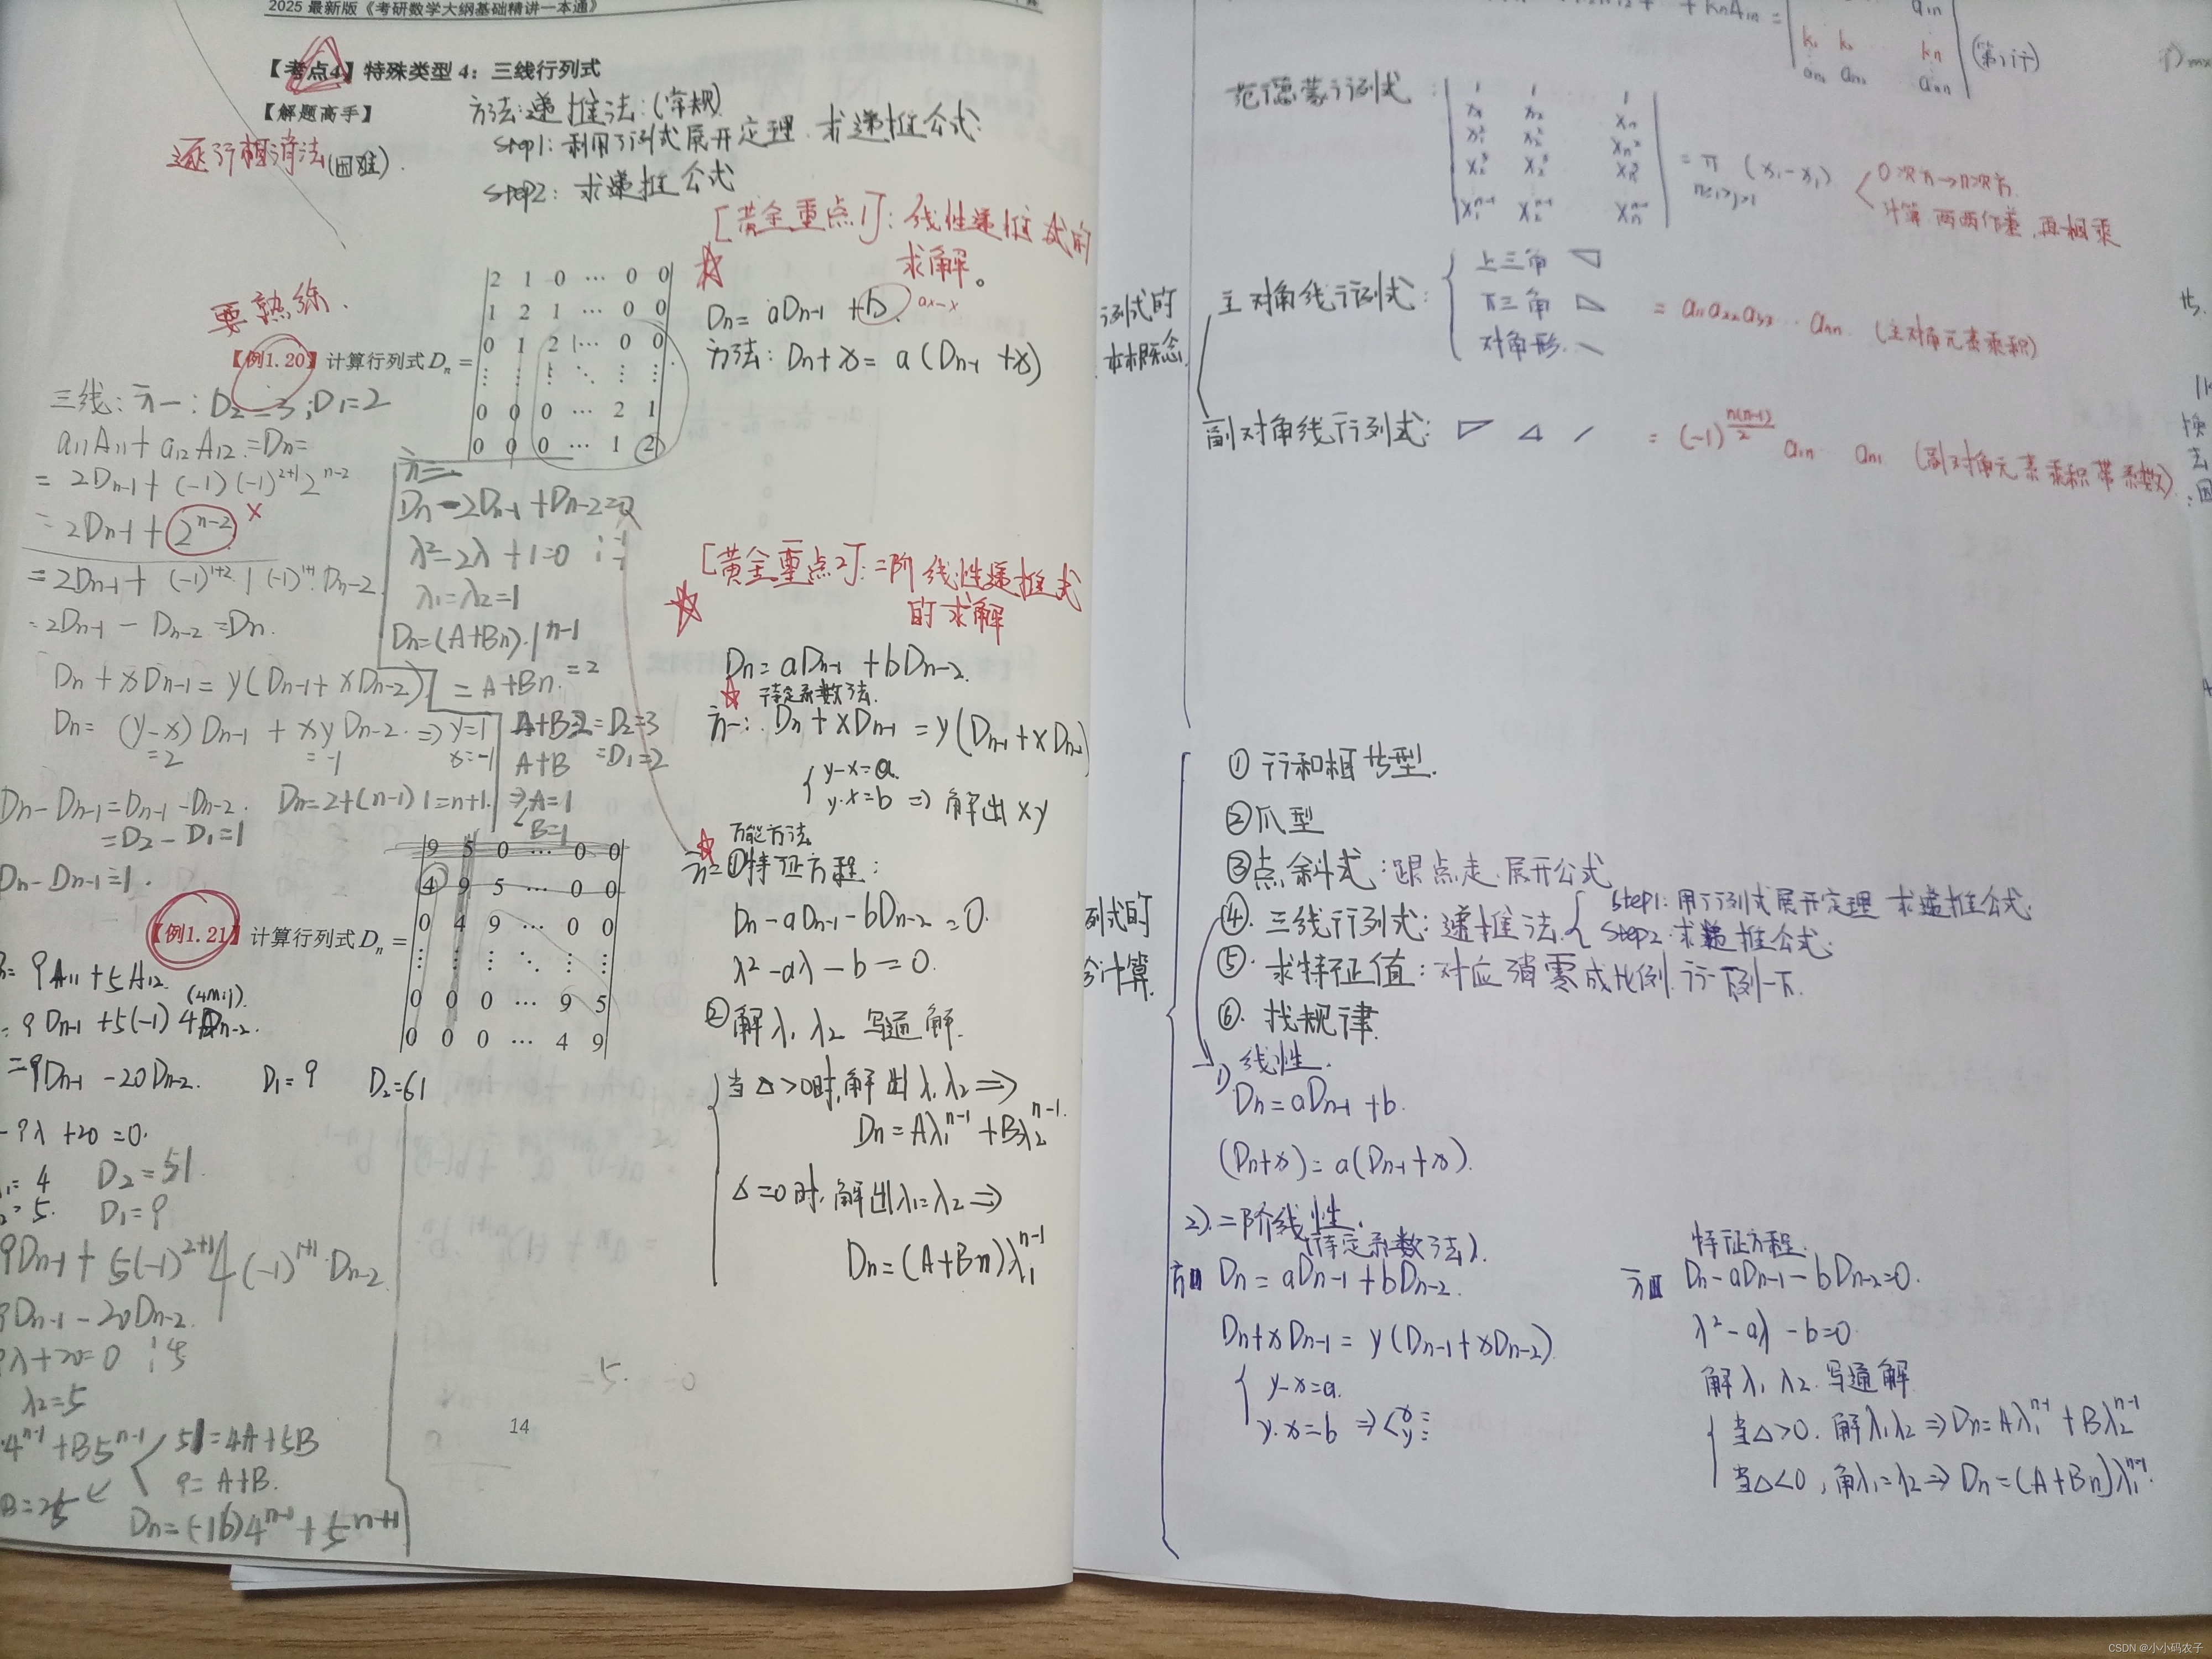 2025 最新版《考研数学大纲基础精讲一本通》
【考点4】特殊类型 4：三线行列式
【解题高手】
逐行相消法(困难).
方法:递推法:(常规)
Step1:利用行列式展开定理.求递推公式:
Step2: 求递推公式
[黄金重点1]: 线性递推式的
求解。
Dn= aDn-1 +b. ax-x
方法: Dn+x= a(Dn-1 +x)
要熟练.
【例1.20】计算行列式 Dn =
2 1 0 … 0 0
1 2 1 … 0 0
0 1 2 1… 0 0
⋮ ⋮ ⋮ ⋱ ⋮ ⋮
0 0 0 … 2 1
0 0 0 … 1 2
三线:方一: D2=3;D1=2
a11A11+ a12A12.=Dn=
= 2Dn-1+ (-1)(-1)^2+1 2^n-2
= 2Dn-1+ 2^n-2 ×
=2Dn-1+ (-1)^1+2·1(-1)^1+1·Dn-2
=2Dn-1 - Dn-2=Dn.
Dn+xDn-1= y(Dn-1+xDn-2)
Dn= (y-x)Dn-1 + xyDn-2.⇒ y=1
=2 =-1 x=-1
Dn-Dn-1=Dn-1-Dn-2. Dn=2+(n-1)1=n+1.
=D2-D1=1
Dn-Dn-1=1.
方二
Dn-2Dn-1+Dn-2=0
λ²-2λ+1=0
λ1=λ2=1
Dn=(A+Bn)·1^n-1
=A+Bn. =2
A+B2=D2=3
A+B =D1=2
⇒A=1
B=1
[黄金重点2]:二阶线性递推式
的求解
Dn= aDn-1 +bDn-2.
待定系数法.
方一: Dn+xDn-1 =y(Dn-1+xDn-2
{ y-x=a.
y·x=b ⇒ 解出xy
万能方法
方二①特征方程:
Dn-aDn-1-bDn-2=0.
λ²-aλ-b=0.
②解λ1 λ2 写通解.
当Δ>0时,解出λ1λ2⇒
Dn=Aλ1^n-1+Bλ2^n-1.
Δ=0时.解出λ1=λ2⇒
Dn=(A+Bn)λ1^n-1
【例1.21】计算行列式 Dn =
9 5 0 … 0 0
4 9 5 … 0 0
0 4 9 … 0 0
⋮ ⋮ ⋮ ⋱ ⋮ ⋮
0 0 0 … 9 5
0 0 0 … 4 9
= 9A11+5A12.
(4M11).
=9Dn-1 +5(-1)4Dn-2.
=9Dn-1 -20Dn-2. D1=9 D2=61
-9λ+20=0.
= 4 D2=51.
= 5. D1=9
9Dn-1+ 5(-1)^2+1 4(-1)^1+1·Dn-2
9Dn-1-20Dn-2.
9λ+20=0
λ2=5
·4^n-1+B5^n-1 51=4A+5B
9=A+B.
B=25
Dn=(-16)4^n-1+5^n+1
14
+knAin = ain
k1 k2 kn (第i行)
an1 an2 ann
范德蒙行列式:
1 1 1
x1 x2 xn
x1² x2² xn²
x1³ x2³ xn³
x1^n-1 x2^n-1 xn^n-1
= π (xi-xj)
n≥i>j≥1
0次方→n次方.
计算 两两作差,再相乘
行列式的
本概念
主对角线行列式:
上三角
下三角
对角形.
= a11a22a33…ann. (主对角元素乘积)
副对角线行列式: = (-1)^n(n-1)/2 a1n an1 (副对角元素乘积带系数)
列式的
计算
①行和相等型.
②爪型
③点斜式:跟点走.展开公式
④.三线行列式:递推法{ Step1:用行列式展开定理 求递推公式.
Step2·求递推公式.
⑤.求特征值:对应消零成比例.行一下列一下.
⑥.找规律.
1) 线性.
Dn=aDn-1 +b.
(Dn+x)=a(Dn-1+x).
2).二阶线性.
(待定系数法).
方I Dn= aDn-1+bDn-2.
Dn+xDn-1= y(Dn-1+xDn-2)
{ y-x=a.
y·x=b ⇒ { x=
y=
特征方程.
方II Dn-aDn-1-bDn-2=0.
λ²-aλ-b=0
解λ1 λ2 写通解
当Δ>0. 解λ1λ2⇒Dn=Aλ1^n-1+Bλ2^n-1
当Δ<0, 解λ1=λ2⇒Dn=(A+Bn)λ1^n-1.
CSDN @小小码农子